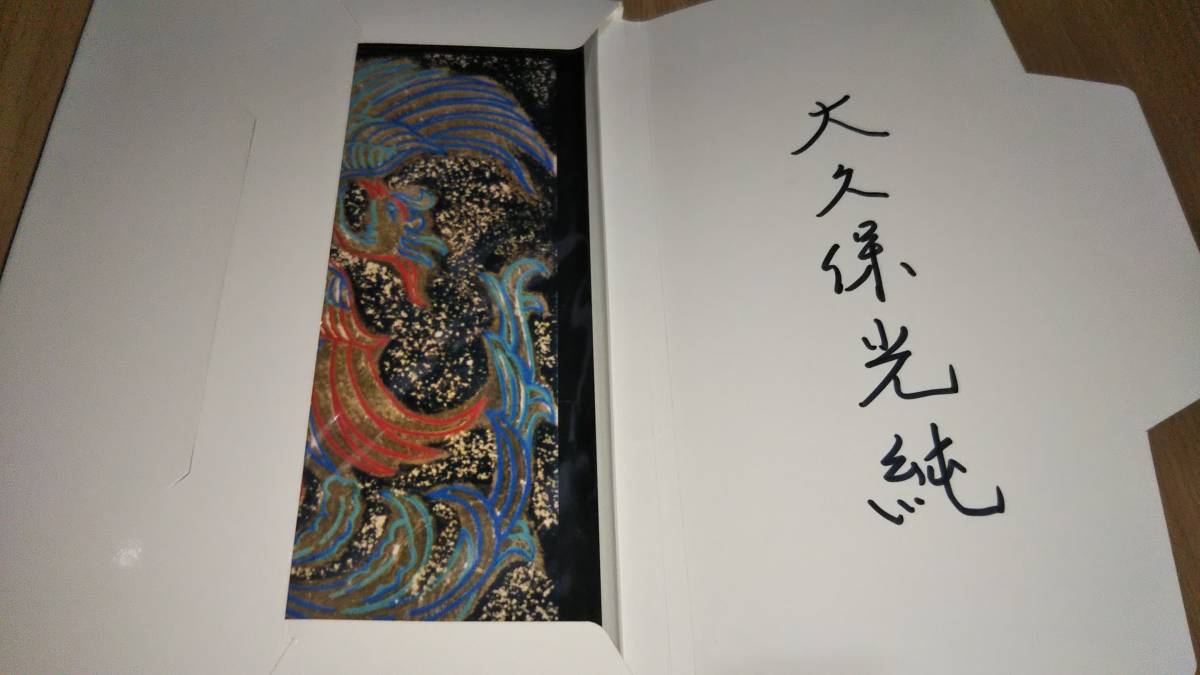 大久保光純